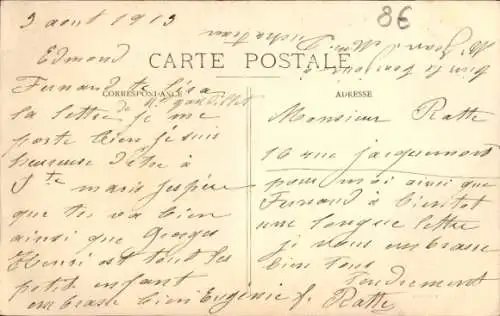 3 aout 1913
86
CARTE POSTALE
CORRESPONDANCE
ADRESSE
Edmond
Fernand te lira
la lettre de Me
je me
porte bien je suis
heureuse d'etre à
Ste marie j'espère
que tu va bien
ainsi que Georges
Henri est tout les
petit enfant
embrasse bien Eugénie
Monsieur Ratte
16 rue jacquemont
pour moi ainsi que
Fernand à bientot
une longue lettre
je vous embrasse
bien tous
Tendrement
Ratte
bien le bonjour à
M. Jean Mme